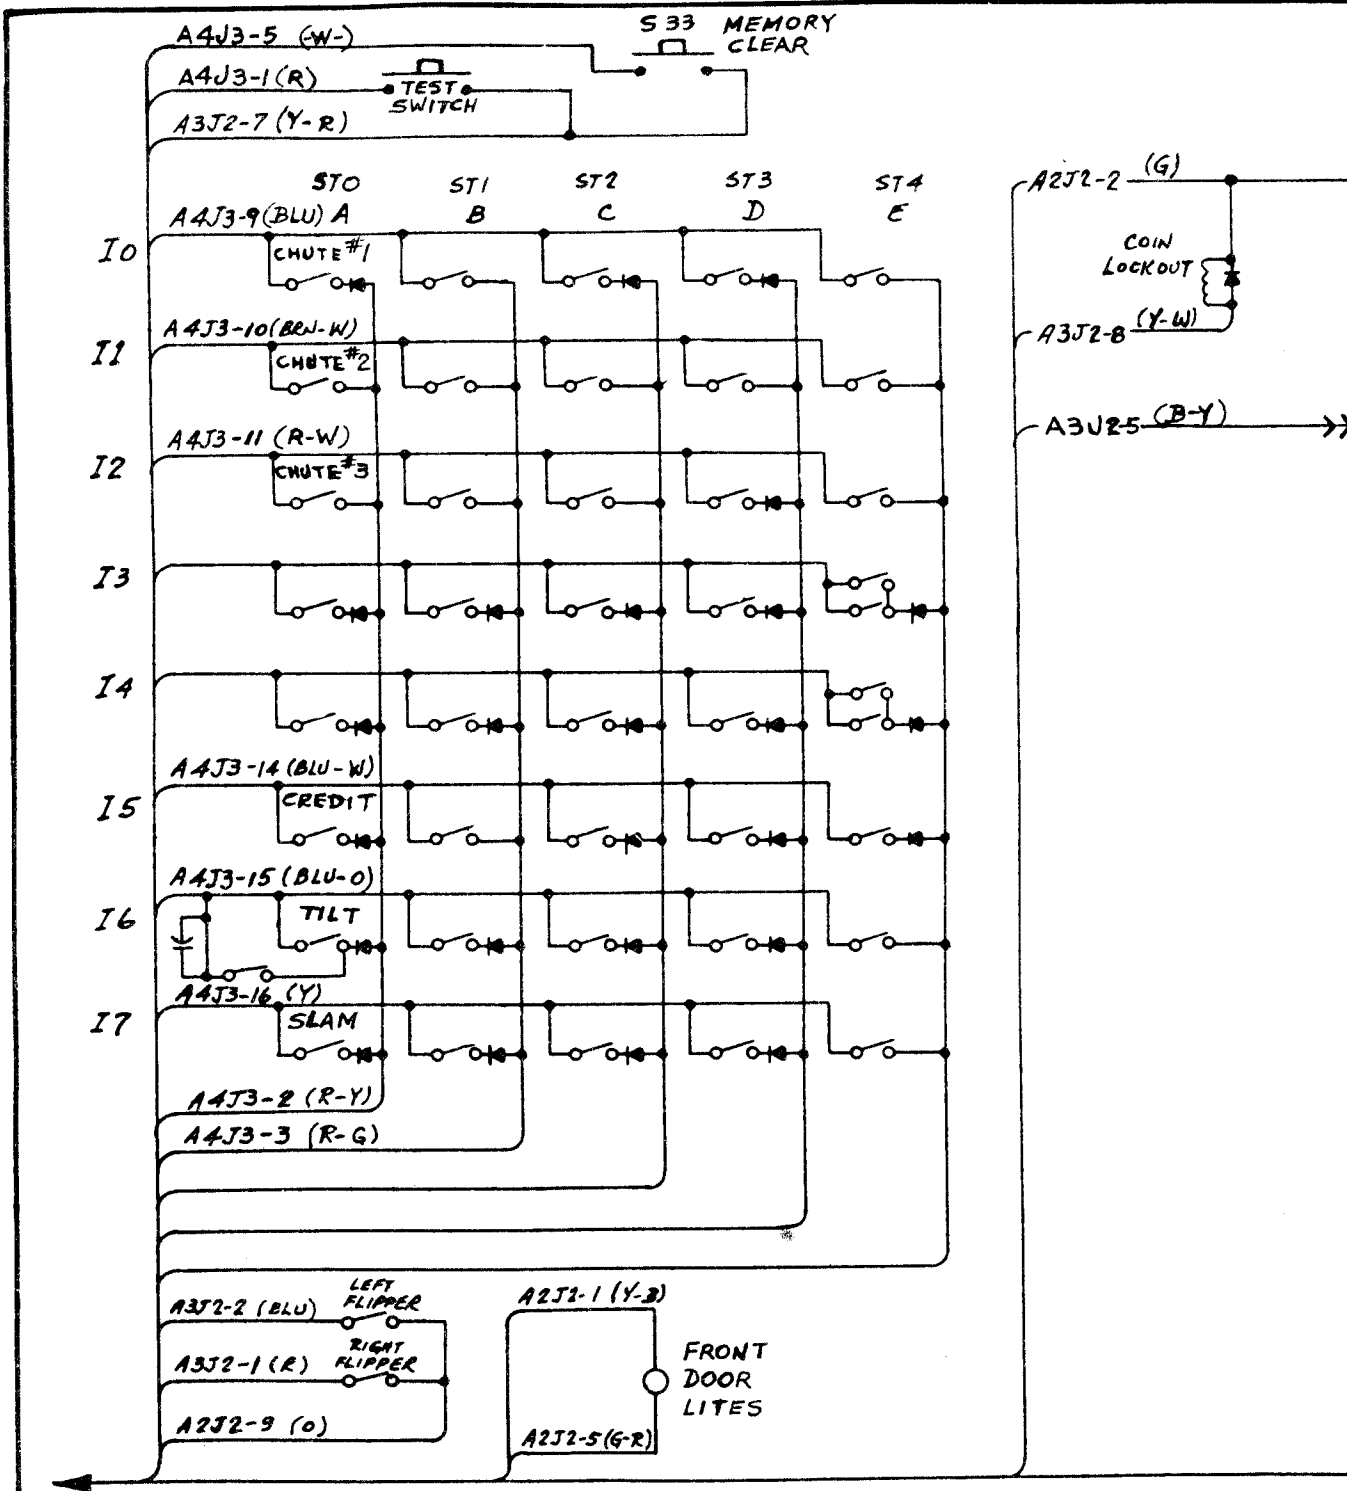 A4J3-5 (-W-)
S33 MEMORY
CLEAR
A4J3-1 (R)
TEST
SWITCH
A3J2-7 (Y-R)
ST0 ST1 ST2 ST3 ST4
A4J3-9 (BLU) A B C D E
I0
CHUTE #1
A4J3-10 (BRN-W)
I1
CHUTE #2
A4J3-11 (R-W)
I2
CHUTE #3
I3
I4
A4J3-14 (BLU-W)
I5
CREDIT
A4J3-15 (BLU-O)
I6
TILT
A4J3-16 (Y)
I7
SLAM
A4J3-2 (R-Y)
A4J3-3 (R-G)
A3J2-2 (BLU)
LEFT
FLIPPER
A3J2-1 (R)
RIGHT
FLIPPER
A2J2-9 (O)
A2J2-1 (Y-B)
FRONT
DOOR
LITES
A2J2-5 (G-R)
A2J2-2 (G)
COIN
LOCKOUT
A3J2-8 (Y-W)
A3J25 (B-Y)